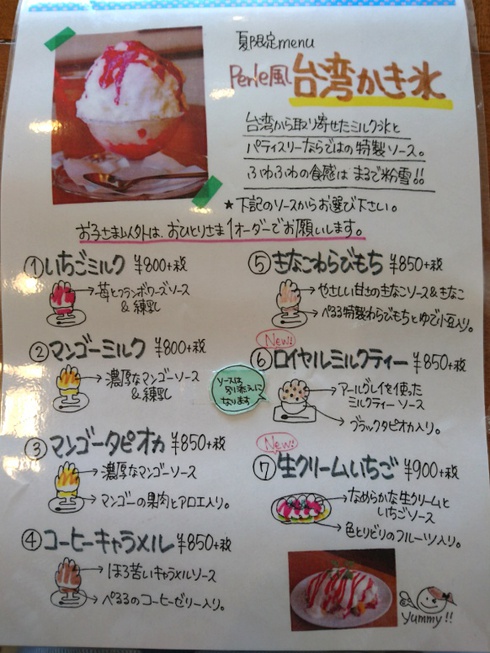 夏限定menu
Perle風 台湾かき氷
台湾から取り寄せたミルク氷と
パティスリーならではの特製ソース。
ふわふわの食感はまるで粉雪!!
★下記のソースからお選び下さい。
お子さま以外は、おひとりさま1オーダーでお願いします。
①いちごミルク ¥800+税
→苺とフランボワーズソース
&練乳
②マンゴーミルク ¥800+税
→濃厚なマンゴーソース
&練乳
③マンゴータピオカ ¥850+税
→濃厚なマンゴーソース
→マンゴーの果肉とアロエ入り。
④コーヒーキャラメル ¥850+税
→ほろ苦いキャラメルソース
→ぺるるのコーヒーゼリー入り。
ソースは
別添えに
なります
⑤きなこわらびもち ¥850+税
→やさしい甘さのきなこソース&きなこ
→ぺるる特製わらびもちとゆで小豆入り。
New!!
⑥ロイヤルミルクティー ¥850+税
→アールグレイを使った
ミルクティーソース
→ブラックタピオカ入り。
New!!
⑦生クリームいちご ¥900+税
→なめらかな生クリームと
いちごソース
→色とりどりのフルーツ入り。
yummy!!